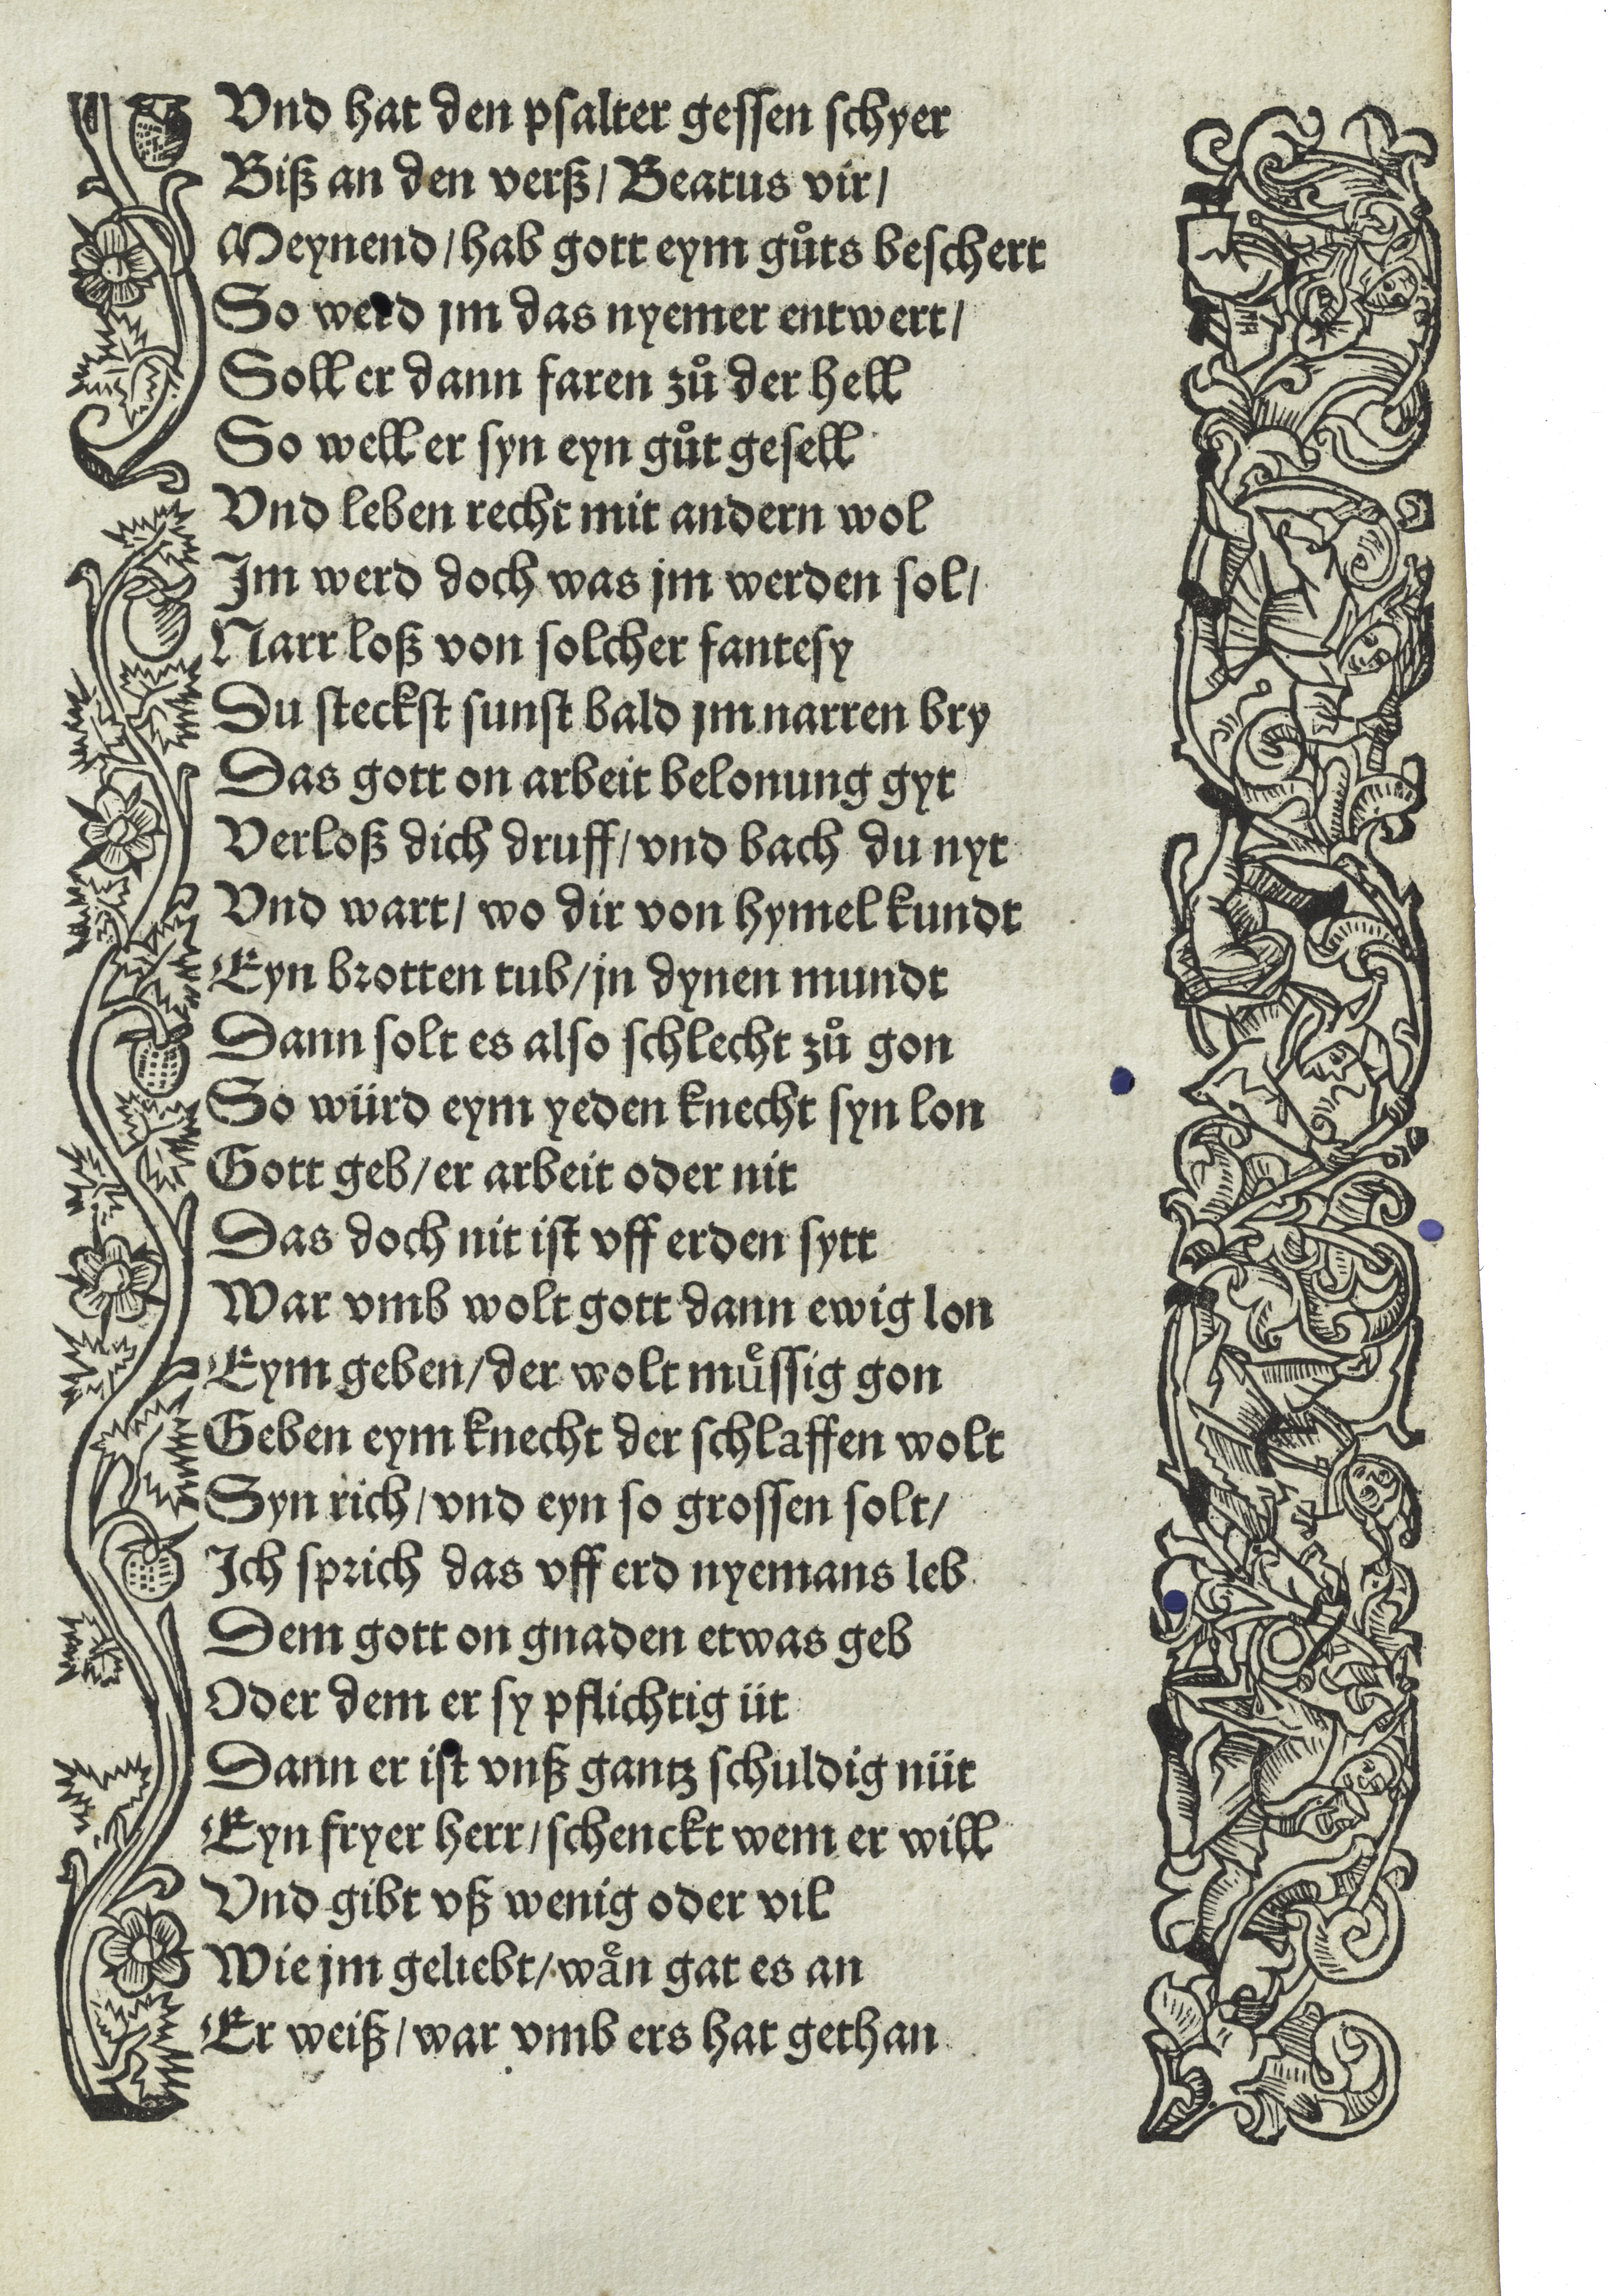 Vnd hat den psalter gessen schyer
Biß an den verß / Beatus vir /
Meynend / hab gott eym gůts beschert
So werd jm das nyemer entwert /
Soll er dann faren zů der hell
So well er syn eyn gůt gesell
Vnd leben recht mit andern wol
Jm werd doch was jm werden sol /
Narr loß von solcher fantesy
Du steckst sunst bald jm narren bry
Das gott on arbeit belonung gyt
Verloß dich druff / vnd bach du nyt
Vnd wart / wo dir von hymel kundt
Eyn brotten tub / jn dynen mundt
Dann solt es also schlecht zů gon
So würd eym yeden knecht syn lon
Gott geb / er arbeit oder nit
Das doch nit ist vff erden sytt
War vmb wolt gott dann ewig lon
Eym geben / der wolt muͤssig gon
Geben eym knecht der schlaffen wolt
Syn rich / vnd eyn so grossen solt /
Jch sprich das vff erd nyemans leb
Dem gott on gnaden etwas geb
Oder dem er sy pflichtig üt
Dann er ist vnß gantz schuldig nüt
Eyn fryer herr / schenckt wem er will
Vnd gibt vß wenig oder vil
Wie jm geliebt / waͤn gat es an
Er weiß / war vmb ers hat gethan